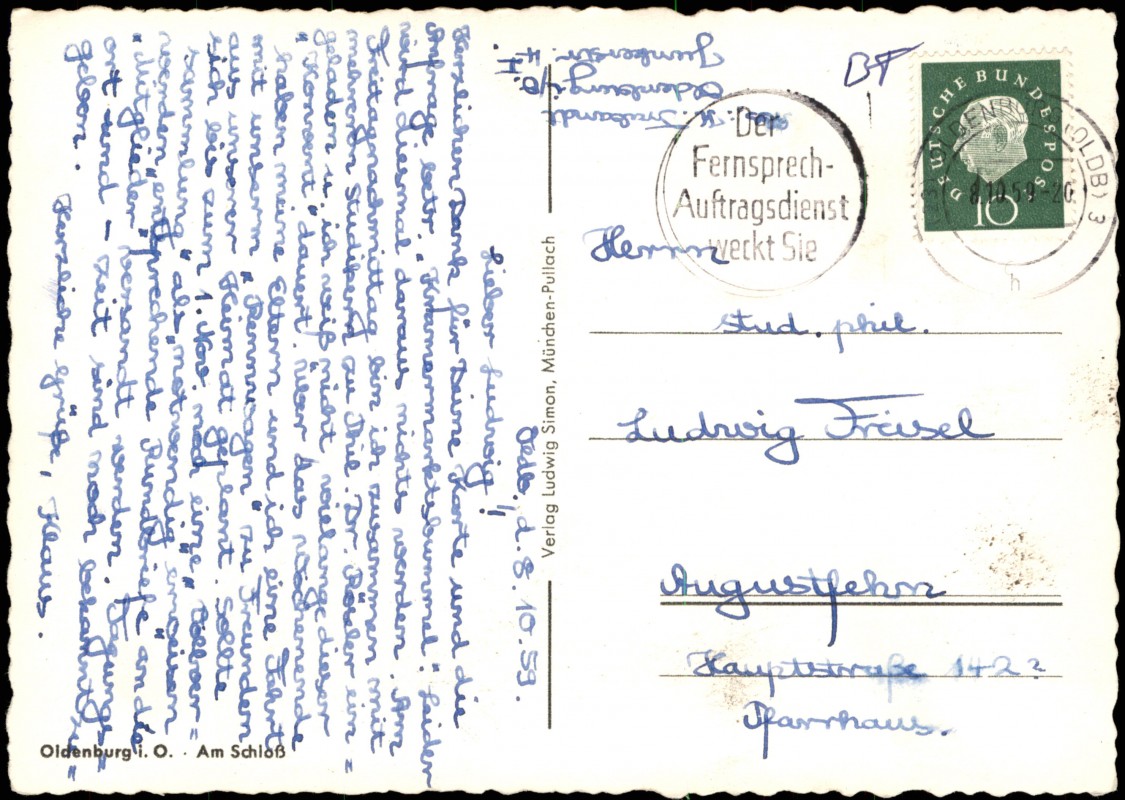 Oldb., d. 8.10.59.
Lieber Ludwig!
Herzlichen Dank für Deine Karte und die
Anfrage betr. "Kramermarktsbummel". Leider
wird diesmal daraus nichts werden. Am
Freitagnachmittag bin ich zusammen mit
mehrern Studikern zu Phil. Dr. ein=
geladen u. ich weiß nicht, wielange dieser
"Konvent" dauert. Über das Wochenende
haben meine Eltern und ich eine Fahrt
mit unserm "Rennwagen" zu Freunden
aus unserer Heimat geplant. Sollte
sich bis zum 1. Nov. noch eine
sammlung" als notwendig erweisen
werden entsprechende "Rundbriefe" an die
"Mitglieder" versandt werden. Tagungs=
ort und - zeit sind noch bekanntzu=
geben.
Herzliche Grüße, Klaus.
Oldenburg i. O. · Am Schloß
Verlag Ludwig Simon, München-Pullach
Abs.: K.
Oldenburg i/O
Junkerstr.
BF
Der
Fernsprech-
Auftragsdienst
weckt Sie
DEUTSCHE BUNDESPOST
10
OLDENBURG (OLDB) 3
8.10.59-20
h
Herrn
stud. phil.
Ludwig Friesel
Augustfehn
Hauptstraße 142?
Pfarrhaus.